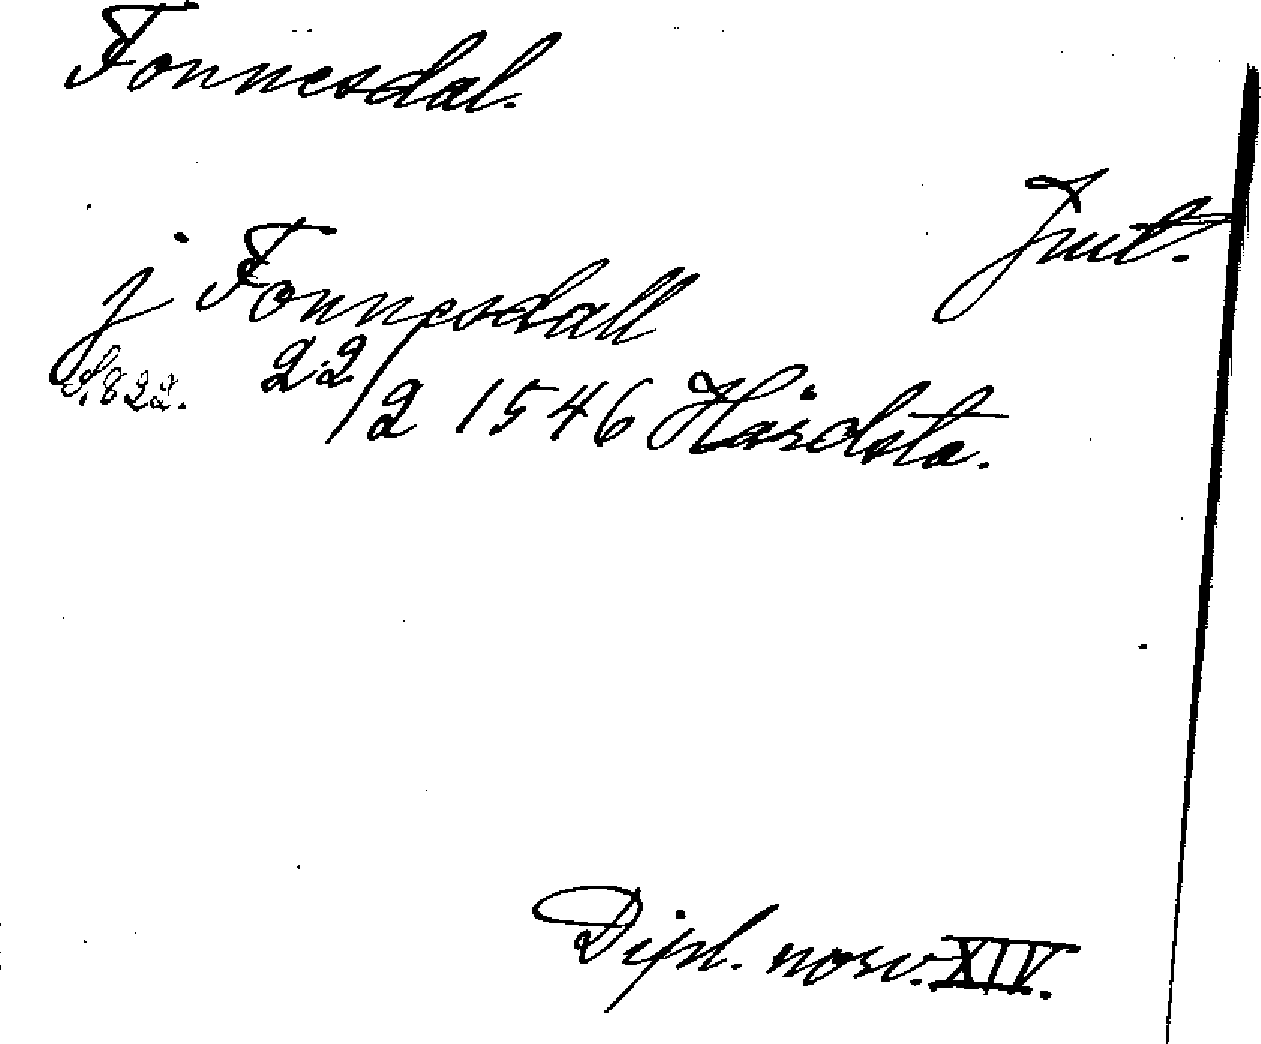 Fonnesdal.
Jmt.
j Fonnesdall
S. 822. 22/2 1546 Hårdsta.
Dipl. norv. XIV.